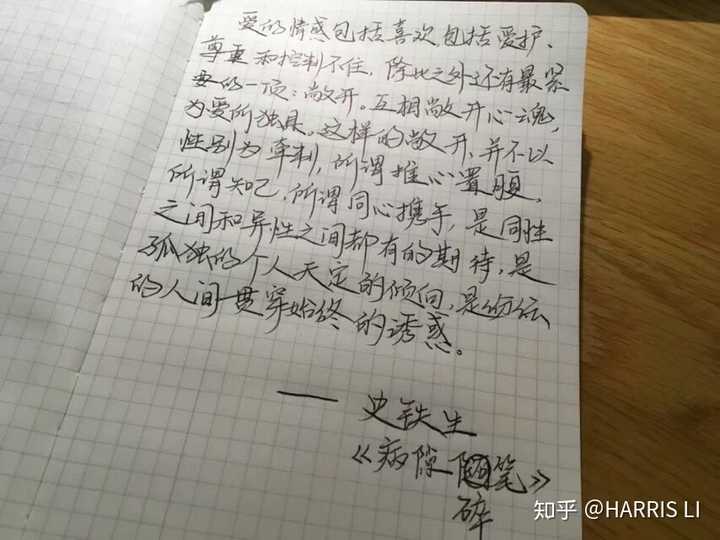 爱的情感包括喜欢,包括爱护、
尊重和控制不住,除此之外还有最紧
要的一项:敞开。互相敞开心魂,
为爱所独具。这样的敞开,并不以
性别为牵制,所谓推心置腹,
所谓知己,所谓同心携手,是同性
之间和异性之间都有的期待,是
孤独的个人天定的倾向,是纷纭
的人间贯穿始终的诱惑。
—— 史铁生
《病隙笔》
碎
知乎 @HARRIS LI